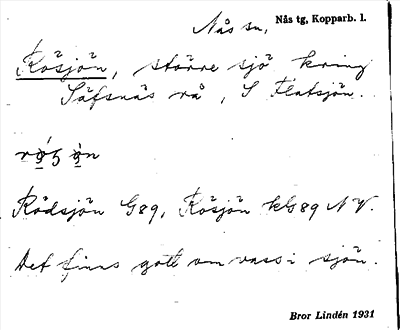 Nås sn, Nås tg, Kopparb. l.
Rösjön, större sjö kring
Säfsnäs rå, S Flatsjön.
Rödsjön G89, Rösjön kb89 NV.
Det finns gott om vass i sjön.
Bror Lindén 1931